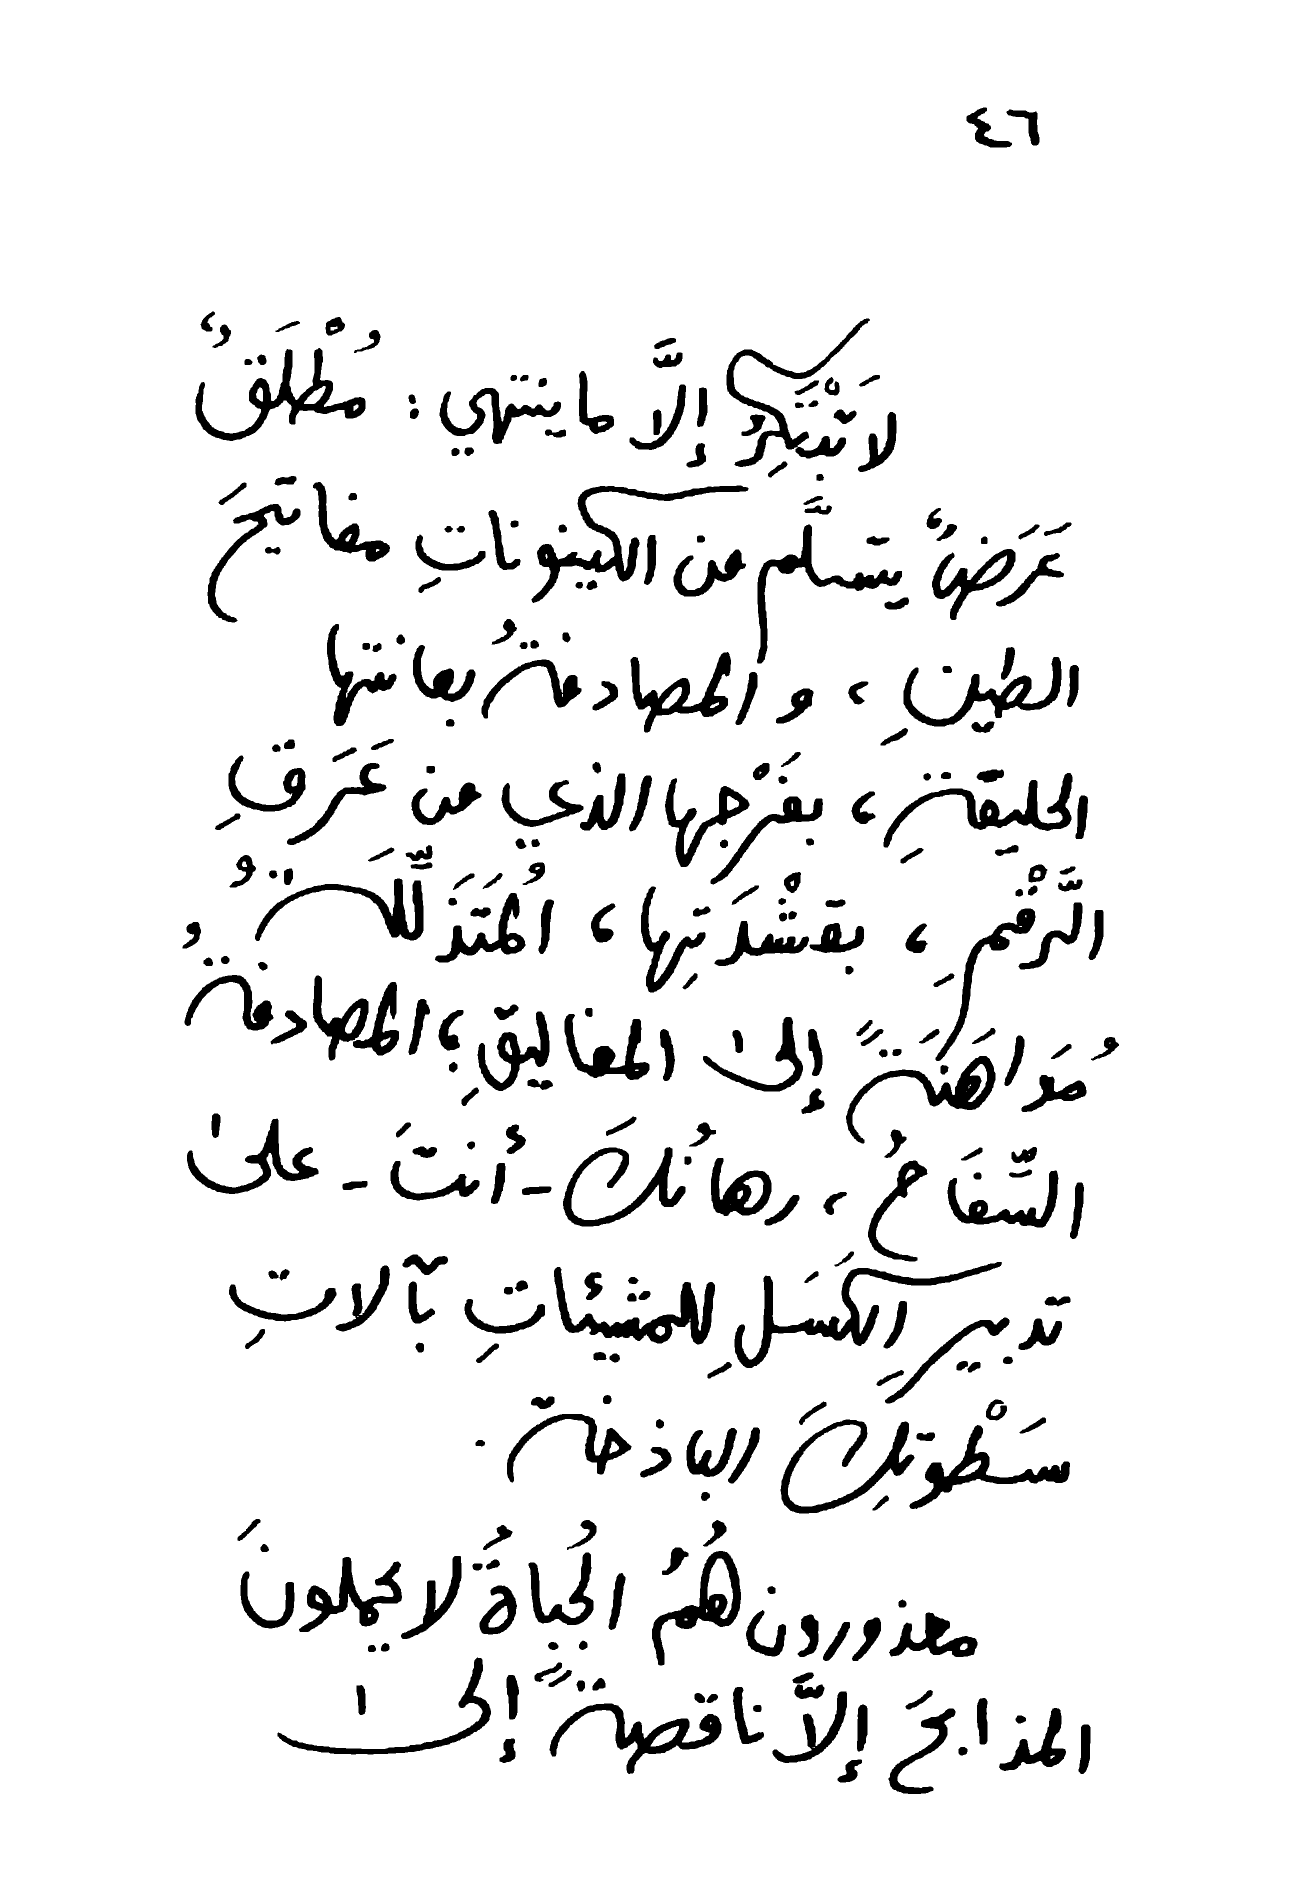 ٤٦
لا تَبْتَكِرُ إلَّا ما ينتهي : مُطْلَقٌ
عَرَضٌ يتسلَّم من الكينوناتِ مفاتيحَ
الطينِ ، و المصادفةُ بعانتها
الحليقةِ ، بفَرْجها الذي من عَرَقِ
الرَّقْمِ ، بقشْدَتِها ، المُتَذَلِّلَةُ
مُدَاهَنَةً إلىٰ المغاليقِ ؛ المصادفةُ
السِّفَاحُ ، رهانُكَ - أنتَ - علىٰ
تدبيرِ الكَسَلِ للمشيئاتِ بآلاتِ
سَطْوتِكَ الباذخة .
معذورون هُمُ الجُباةُ لا يحملونَ
المذابحَ إلاَّ ناقصةً إلىٰ